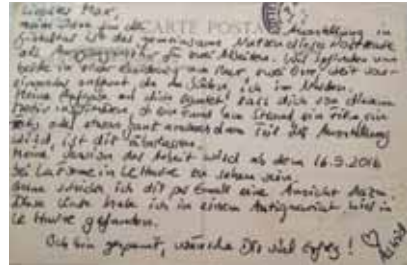 Liebster Max,
meine Idee für die Ausstellung in
CARTE POSTALE
ist das gemeinsame Nutzen dieser Postkarte
als Ausgangspunkt für zwei Arbeiten. Wir befinden uns
beide in einer am Meer, zwei Orte, weit von-
einander entfernt du im Süden, ich im Norden.
Meine Aufgabe an dich lautet: lass dich von diesem
Motiv inspirieren, ob ein Fund am Strand, ein Film, ein
Foto oder etwas ganz anderes dann Teil der Ausstellung
wird, ist dir überlassen.
Meine Version der Arbeit wird ab dem 16.9.2016
bei in Le Havre zu sehen sein.
Gerne schicke ich dir per Email eine Ansicht dazu.
Diese Karte habe ich in einem Antiquariat hier in
Le Havre gefunden.
Ich bin gespannt, wünsche Dir viel Erfolg!